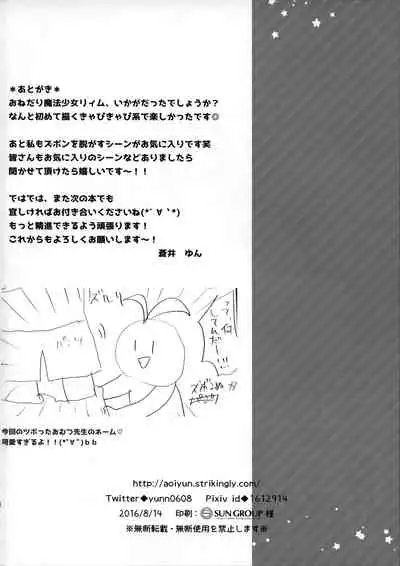 ＊あとがき＊
おねだり魔法少女リィム、いかがだったでしょうか？
なんと初めて描くきゃぴきゃぴ系で楽しかったです◎
あと私もズボンを脱がすシーンがお気に入りです笑
皆さんもお気に入りのシーンなどありましたら
聞かせて頂けたら嬉しいです～！！
ではでは、また次の本でも
宜しければお付き合いくださいね(*´∀`*)
もっと精進できるよう頑張ります！
これからもよろしくお願いします～！
蒼井　ゆん
ズルリ
パンツ
って、何
してんだー!!!
今回のツボったおむつ先生のネーム♡
可愛すぎるよ！！(*´∀`)ｂｂ
http://aoiyun.strikingly.com/
Twitter◆yunn0608　Pixiv id◆1612914
2016/8/14　印刷：SUN GROUP 様
※無断転載・無断使用を禁止します※